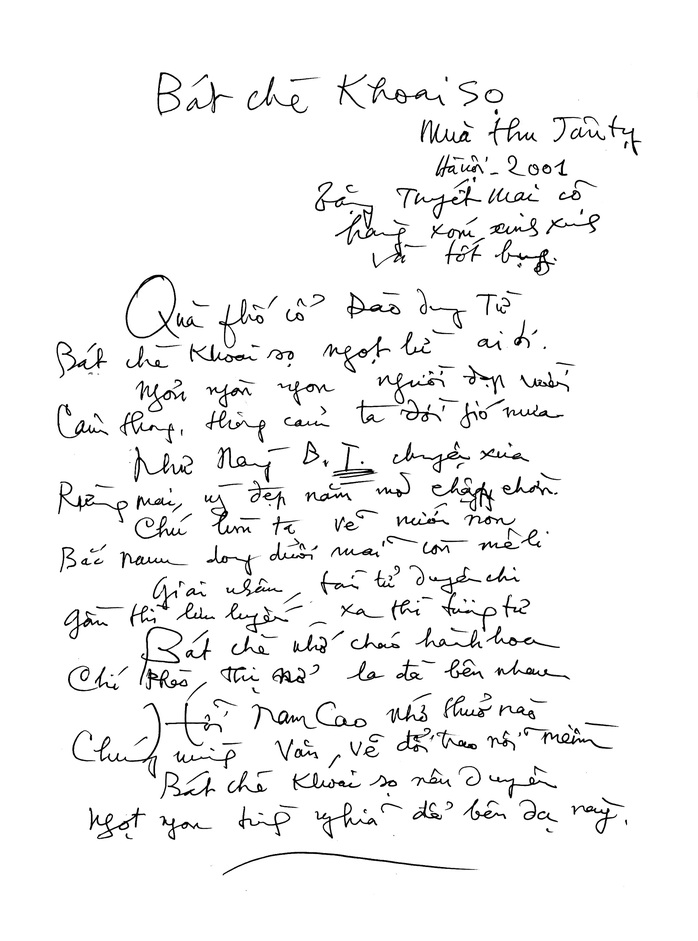 Bát chè Khoai Sọ
Mùa thu Tân tỵ
Hà nội - 2001
Tuyết Mai cô
hàng xóm xinh xinh
và tốt bụng.
Quà phố cổ Đào duy Từ
Bát chè Khoai sọ ngọt lừ ai ơi.
người đẹp
ta đổi gió mưa
Như Nang B. I. chuyện xưa
mai, đẹp năm mơ chập chờn.
Chú ta về nước non
Bắc nam dong duổi mai còn mê li
Giai nhân, tài tử duyên chi
Gần thì lưu luyến xa thì tương tư
Bát chè nhớ cháo hành hoa
Chí Phèo, Thị Nở la đà bên nhau
Hỡi Nam Cao nhớ thuở nào
Chúng mừng Văn, Vẽ đổi trao nỗi mềm
Bát chè Khoai sọ nên duyên
Ngọt ngon từng nghĩa để bên dạ này.